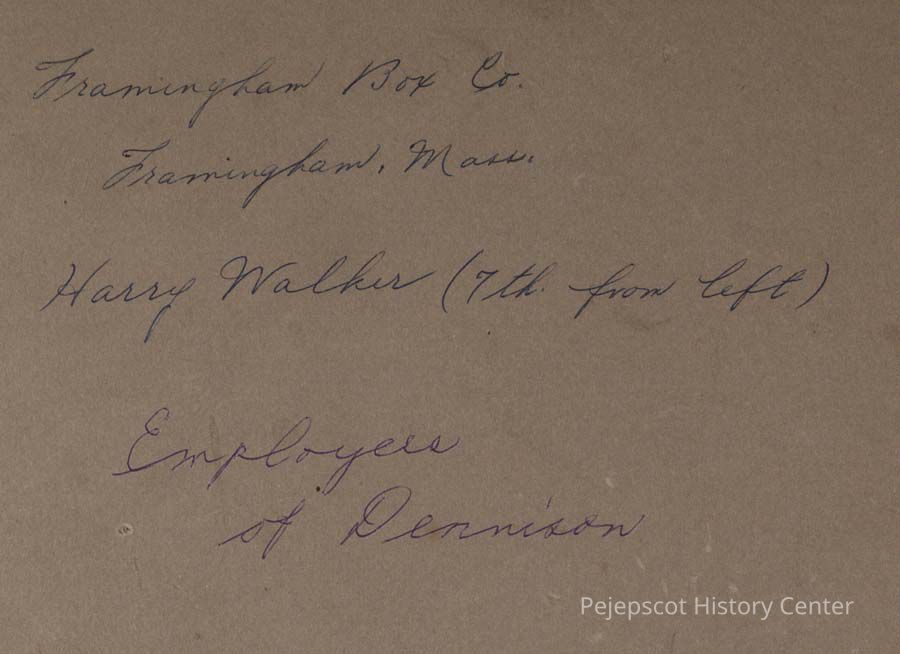 Framingham Box Co.
Framingham, Mass.
Harry Walker (7th. from left)
Employees
of Dennison
Pejepscot History Center